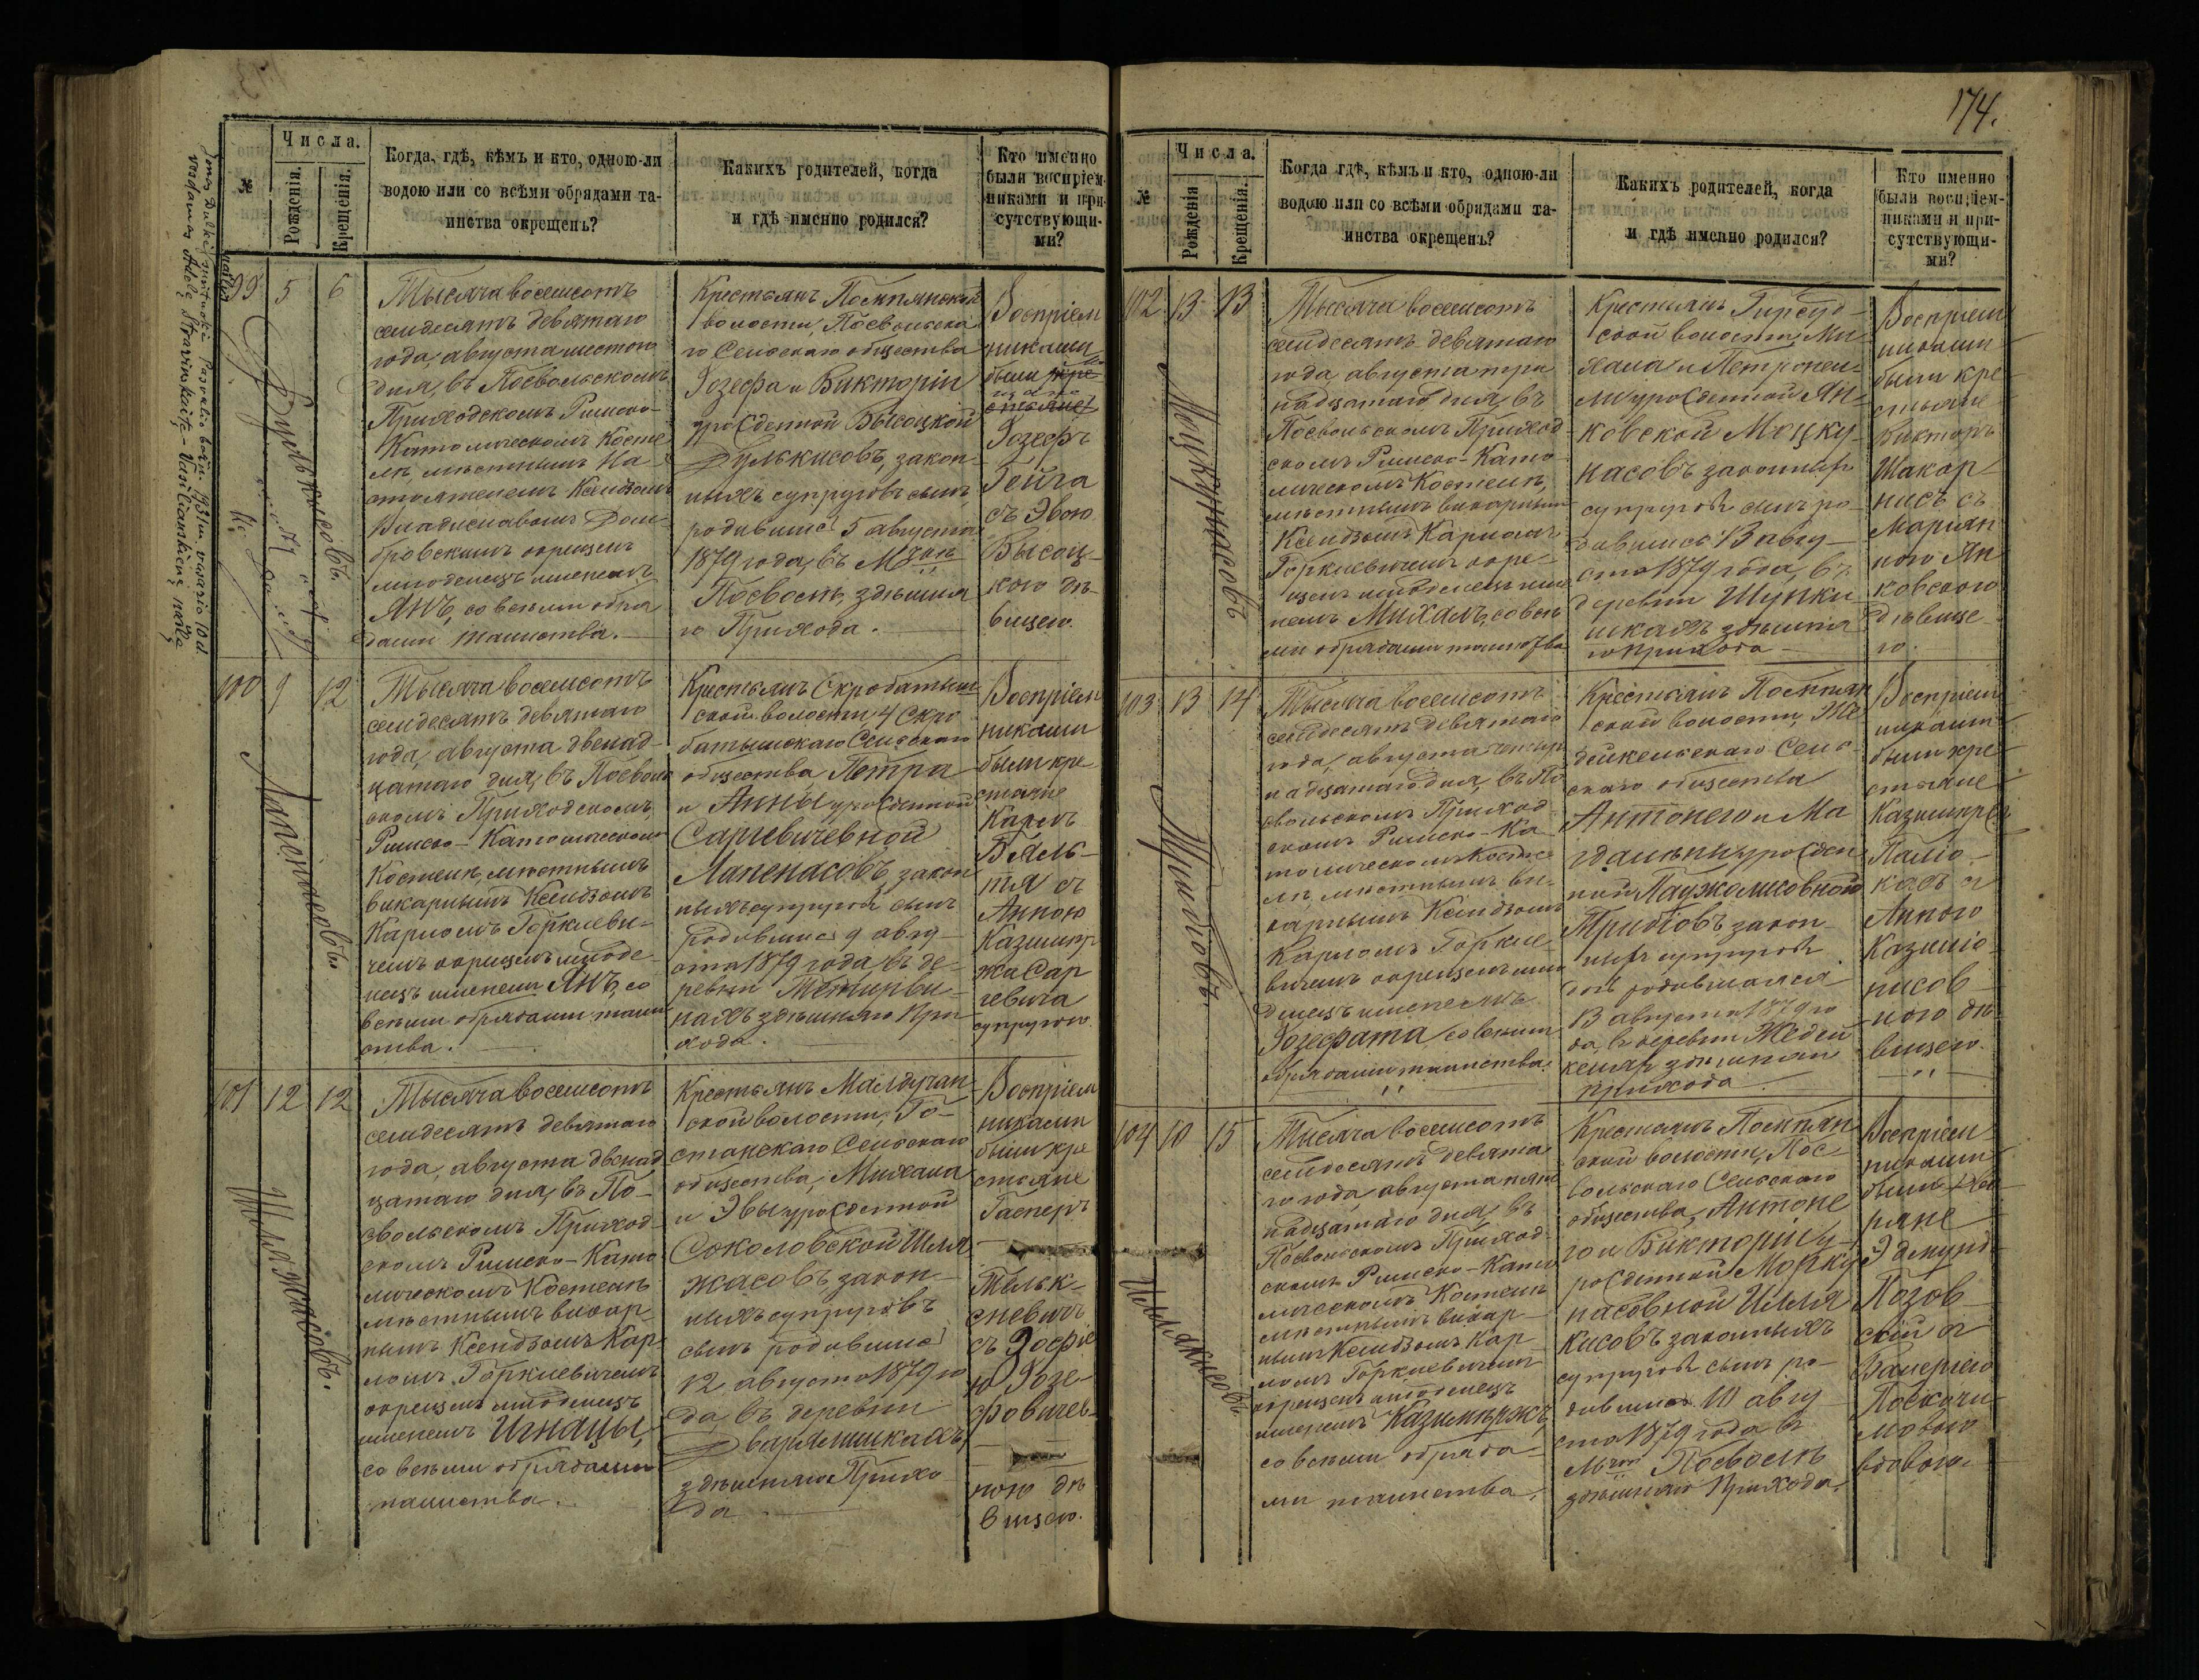 174.
№
Числа.
Рожденія.
Крещенія.
Когда, гдѣ, кѣмъ и кто, одною-ли
водою или со всѣми обрядами та-
инства окрещенъ?
Какихъ родителей, когда
и гдѣ именно родился?
Кто именно
были воспріем-
никами и при-
сутствующи-
ми?
99
5
6
Дулькисовъ
Тысяча восемсотъ
семдесятъ девятаго
года, августа шестого
дня, въ Посвольскомъ
Приходскомъ Римско-
Католическомъ Косте
лѣ, мѣстнымъ На-
стоятелемъ Ксендзомъ
Владиславомъ Дом-
бровскимъ окрещенъ
младенецъ именемъ
Янъ, со всѣми обря
дами таинства.
Крестьянъ Поскпянской
волости, Посвольска
го Сельскаго общества
Іозефа и Викторіи
урожденной Высоцкой
Дулькисовъ, закон-
ныхъ супруговъ сынъ
родившійся 5 августа
1879 года, въ Мѣчкѣ
Посволь, здѣшня
го Прихода.
Воспріем
никами
были
Іозефъ
Гейга
съ Эвою
Высоц-
кою дѣ-
вицею.
100
9
12
Лапенасовъ
Тысяча восемсотъ
семдесятъ девятаго
года, августа двенад-
цатаго дня, въ Посволь
скомъ Приходскомъ,
Римско-Католическомъ
Костелѣ, мѣстнымъ
викарнымъ Ксендзомъ
Карломъ Горкиеви-
чемъ окрещенъ младе-
нецъ именемъ Янъ, со
всѣми обрядами таин
ства.
Крестьянъ Скробатыш-
ской волости, 4 Скро
батышскаго Сельскаго
общества Петра
и Анны урожденной
Сарцевичевной
Лапенасовъ, закон
ныхъ супруговъ сынъ
родившійся 9 авгу-
ста 1879 года, въ де-
ревни
здѣшняго При-
хода.
Воспріем
никами
были кре
стьяне
Карль
съ
Анною
Казимір
жа Сар
цевича
супругою
101
12
12
Шляжасовъ.
Тысяча восемсотъ
семдесятъ девятаго
года, августа двенад
цатаго дня, въ По-
свольскомъ Приход-
скомъ Римско-Като
лическомъ Костелѣ
мѣстнымъ викар-
нымъ Ксендзомъ Кар-
ломъ Горкиевичемъ
окрещенъ младенецъ
именемъ Игнацы,
со всѣми обрядами
таинства.
Крестьянъ
ской волости, Го-
станскаго Сельскаго
общества, Михаила
и Эвы урожденной
Соколовской Шля
жасовъ, закон-
ныхъ супруговъ
сынъ родившійся
12 августа 1879 го
да, въ деревни
Дварялишкахъ,
здѣшняго Прихо
да
Воспріем
никами
были кре
стьяне
Гаспер
съ Зофіе
ю Іозе-
фовичев-
ною дѣ
вицею.
№
Числа.
Рожденія
Крещенія.
Когда гдѣ, кѣмъ и кто, одною-ли
водою или со всѣми обрядами та-
инства окрещенъ?
Какихъ родителей, когда
и гдѣ именно родился?
Кто именно
были воспріем-
никами и при-
сутствующи-
ми?
102
13
13
Моцкунасовъ
Тысяча восемсотъ
семдесятъ девятаго
года, августа три
надцатаго дня, въ
Посвольскомъ Приход-
скомъ Римско-Като
лическомъ Костелѣ,
мѣстнымъ викарнымъ
Ксендзомъ Карломъ
Горкиевичемъ окре-
щенъ младенецъ име
немъ Михалъ, со всѣ
ми обрядами таинства
Крестьянъ Гирсуд-
ской волости, Ми
хала и Петронел-
ли урожденной Ян-
ковской Моцку-
насовъ законныхъ
супруговъ сынъ ро-
дившійся 13 авгу-
ста 1879 года, въ
деревни Шупки
шкахъ здѣшня
го прихода
Воспріем
никами
были кре
стьяне
Викторъ
Шакар
нисъ съ
Маріян
ною Ян
ковского
дѣвице
ю.
103
13
14
Трибіовъ
Тысяча восемсотъ
семдесятъ девятаго
года, августа четыр
надцатаго дня, въ По
свольскомъ Приход
скомъ Римско-Ка
толическомъ Косте
лѣ, мѣстнымъ ви-
карнымъ Ксендзомъ
Карломъ Горкие
вичемъ окрещенъ мла
денецъ именемъ
Іозефата, со всѣми
обрядами таинства.
Крестьянъ Поскпян
ской волости, Же
дейкельскаго Сель-
скаго общества
Антонего и Ма
гдалѣны урожден
ной Паужолисовной
Трибіовъ, закон-
ныхъ супруговъ
дочь родившаяся
13 августа 1879 го
да, въ деревни Жедей
келяхъ здѣшняго
прихода
Воспріем
никами
были кре
стьяне
Казимиръ
Паліо-
касъ съ
Анною
Казиліо-
нисов-
ною дѣ
вицею.
104
10
15
Шлякисовъ
Тысяча восемсотъ
семдесятъ девята
го года, августа пят
надцатаго дня, въ
Посвольскомъ Приход-
скомъ Римско-Като
лическомъ Костелѣ
мѣстнымъ викар-
нымъ Ксендзомъ Кар-
ломъ Горкиевичемъ
окрещенъ младенецъ
именемъ Казимѣржъ,
со всѣми обряда-
ми таинства.
Крестьянъ Поскпян
ской волости, Пос-
вольскаго Сельскаго
общества, Антоне
го и Викторіи у-
рожденной Моцку
насовной Шля
кисовъ законныхъ
супруговъ сынъ ро-
дившійся 10 авгу
ста 1879 года въ
Мѣчкѣ Посволь
здѣшняго Прихода.
Воспріем
никами
были дво
ряне
Эдмунд
Позов
скій съ
Валеріею
вдовою.